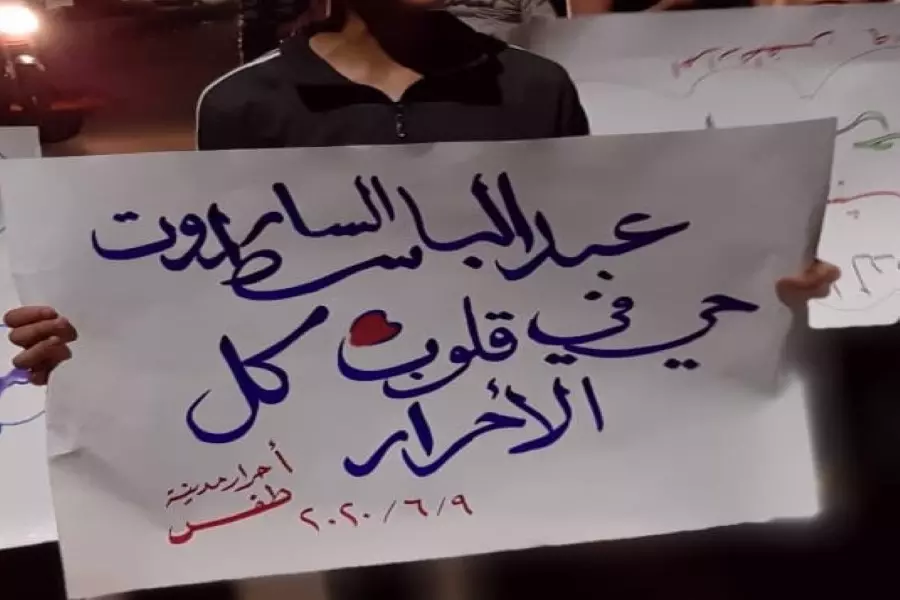 عبدالباسط الساروت
حي في قلوب كل
الأحرار
أحرار مدينة
طفس
٢٠٢٠/٦/٩